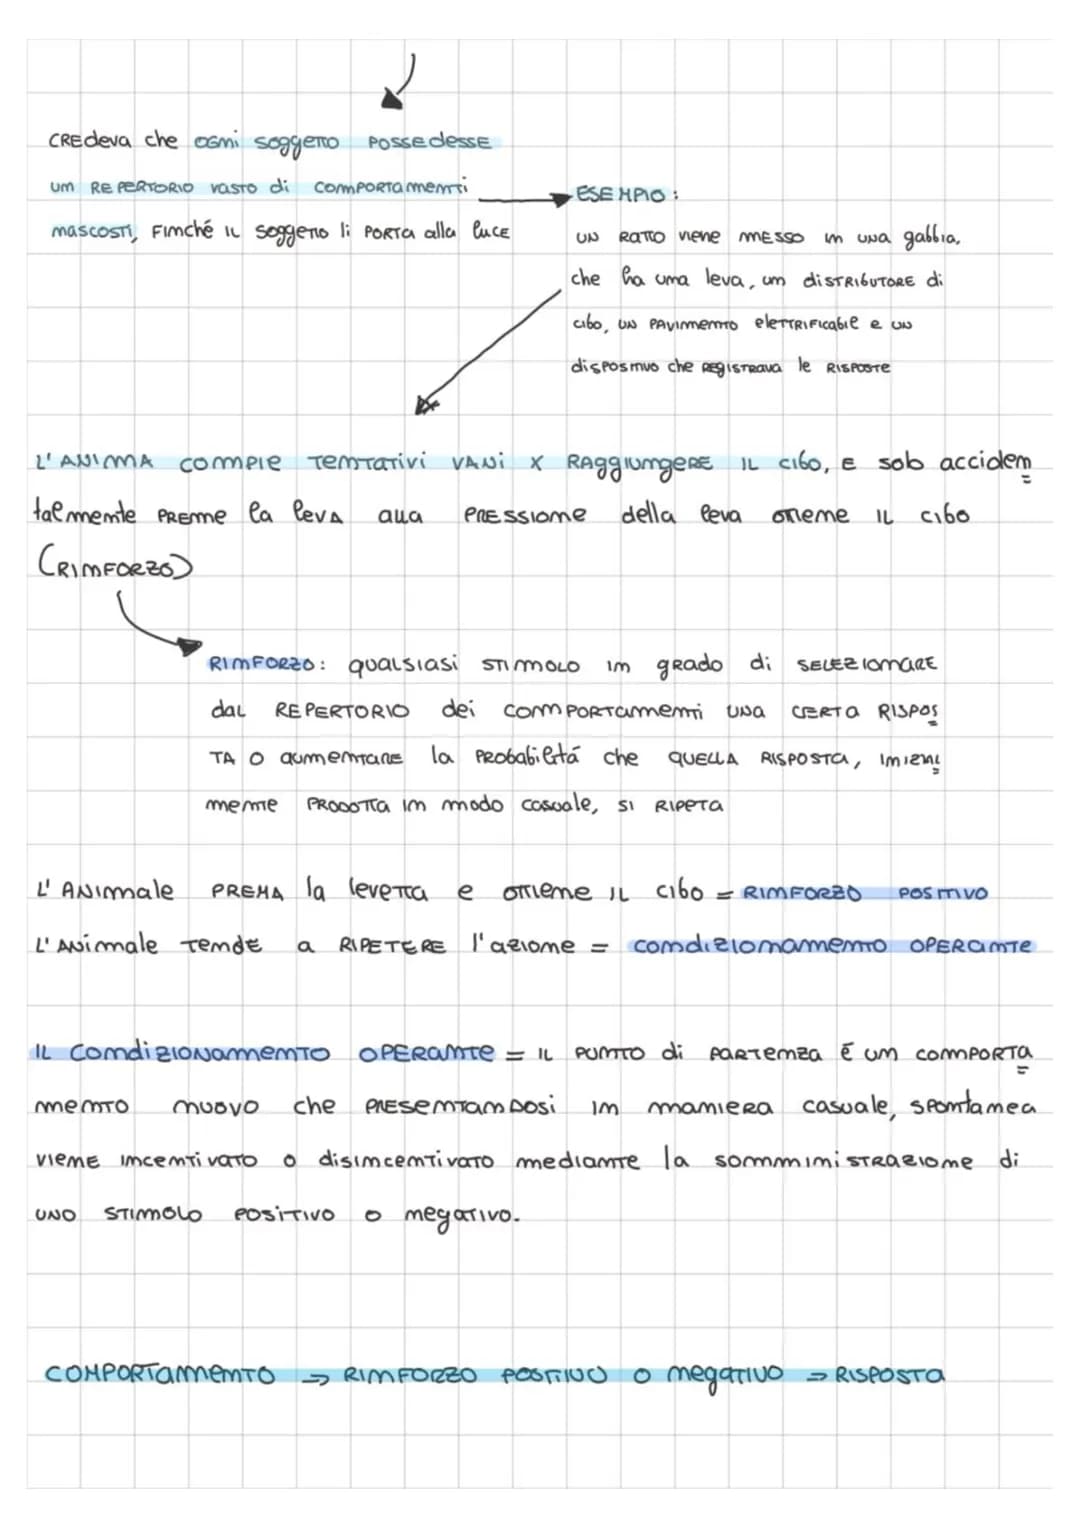 CREdeva che OGNi soggetto POSSEdesse
un REPERTORIO vasto di comportamenti
nascosti, Finché IL soggetto li PORTA alla luce
ESEMPIO:
UN RATTO viene messo in una gabbia,
che ha una leva, un diSTRIBUTORE di
cibo, UN PAVIMENTO elettrificabile e UN
dispositivo che REgISTRAVA le RISPOSTE
L'ANIMA compie TENTATIVI VANI X RAggiungERE IL cibo, E sob acciden
talmente PREME la leva alla PRESSIONE della leva ottiene IL cibo
(RINFORZO)
RINFORZO: qualsiasi STIMOLO in grado di SELEZIONARE
dal REPERTORIO dei COMPORTAMENTI UNA CERTA RISPOS
TA O aumentare la PRobabilitá che QUELLA RISPOSTA, INIZIAL
mente PRODOTTA in modo casuale, SI RIPETA
L'ANImale PREMA la levetta e ottiene IL cibo = RINFORZO POSITIVO
L'ANimale TENdE a RIPETERE l'azione = condizionamento OPERANTE
IL CondiZIONAmento OPERANTE = IL PUNTO di PARTENZA é un COMPORTA
mento nuovo che PRESENTANDOSI IN maniera casuale, spontanea
VIENE INCENTIVATO o disincentivato mediante la somministrazione di
UNO STIMOLO POSITIVO o negativo.
COMPORTAMENTO → RINFORZO POSITIVO o negativo → RISPOSTA